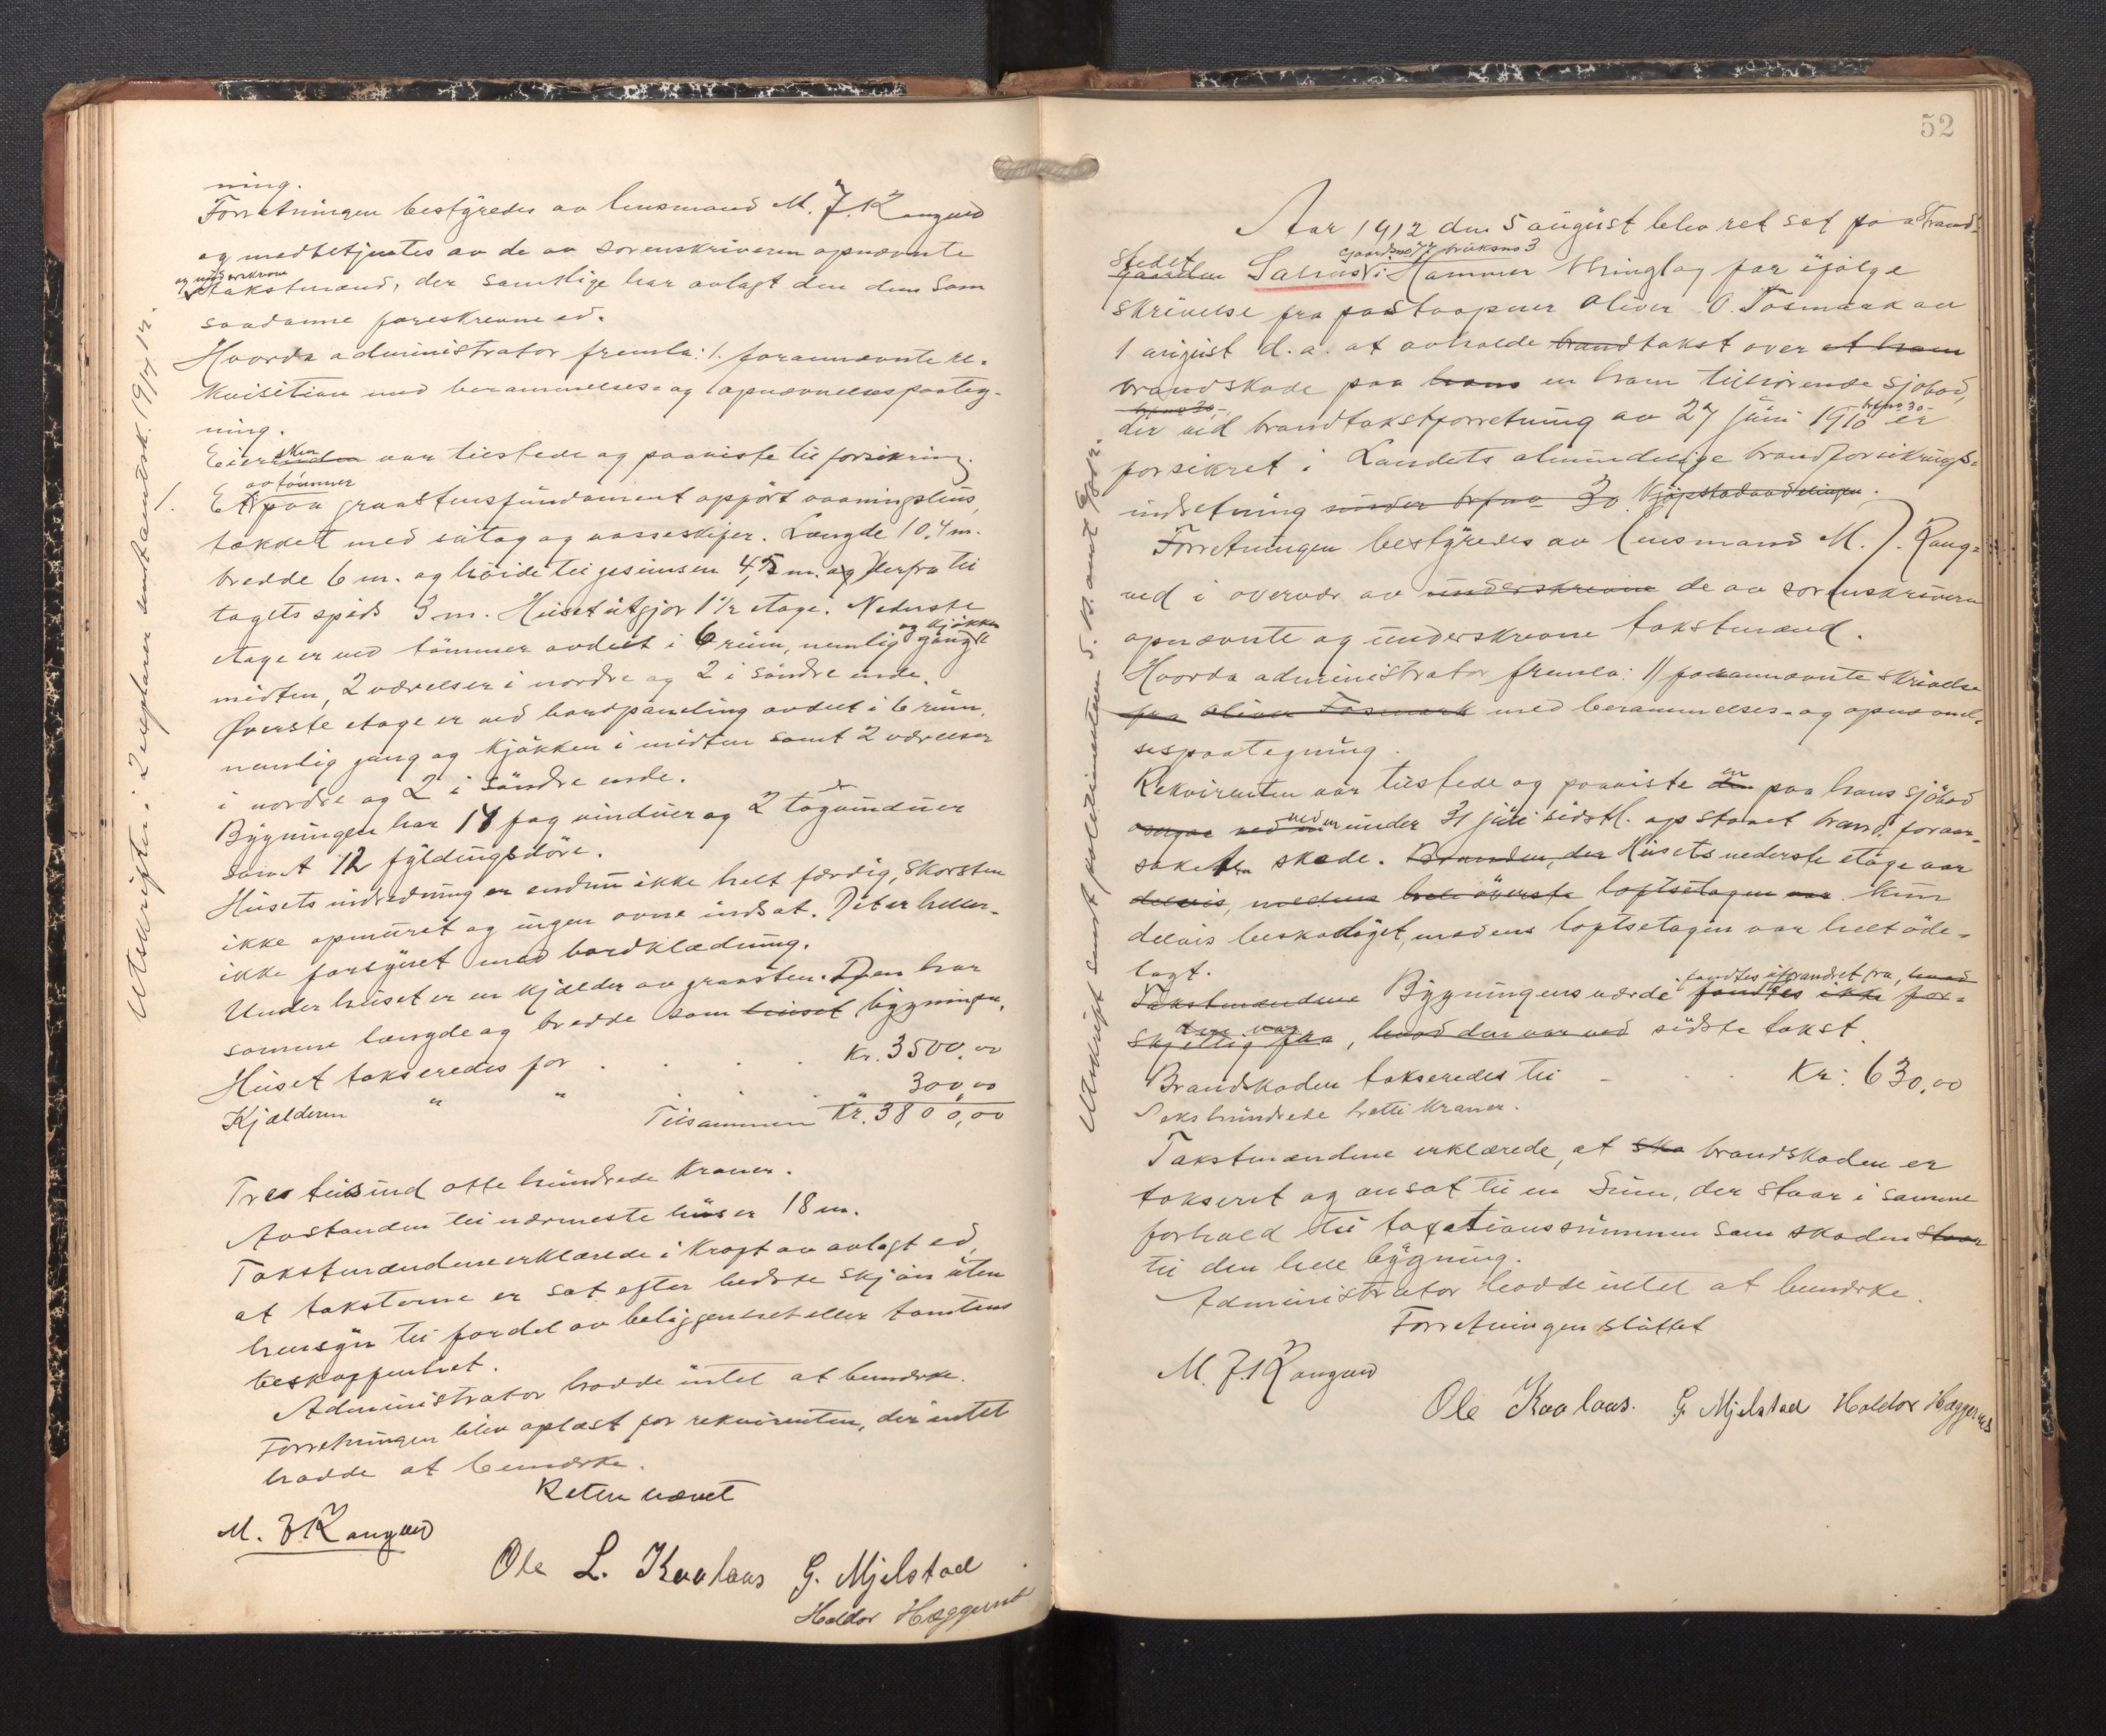 ning.
Forretningen bestyredes av lensmand M. J. Rangved
og medbetjentes av de av sorenskriveren opnævnte
og underskrevne
takstmænd, der samtlige har avlagt den dem som
saadanne foreskrevne ed.
Hvorda administrator fremla: 1. forannævnte re-
kvisition med berammelses- og opnævnelsespaateg-
ning.
Eieren var tilstede og paaviste til forsikring.
av tømmer
1. Et paa graastensfundament opført vaaningshus,
tækket med sutag og vosseskifer. Længde 10,4 m.
bredde 6 m. og höide til gesimsen 4,5 m. og derfra til
tagets spids 3 m. Huset utgjør 1 1/2 etage. Nederste
og kjøkken
etage er ved tömmer avdelt i 6 rum, nemlig gang i
midten, 2 værelser i nordre og 2 i söndre ende.
Øverste etage er ved bordpaneling avdelt i 6 rum,
nemlig gang og kjøkken i midten samt 2 værelser
i nordre og 2 i söndre ende.
Bygningen har 14 fag vinduer og 2 tagvinduer
samt 12 fyldingsdöre.
Husets indredning er endnu ikke helt færdig, skorsten
ikke opmuret og ingen ovne indsat. Det er heller-
ikke forsynet med bordklædning.
Under huset er en kjælder av graasten. Den har
samme længde og bredde som huset bygningen.
Huset takseredes for . . . Kr. 3500,00
Kjælderen " " . . 300,00
Tilsammen Kr. 3800,00
Tre tusind otte hundrede Kroner.
Avstanden til nærmeste hus er 18 m.
Takstmændene erklærede i kraft av avlagt ed,
at taksterne er sat efter bedste skjön uten
hensyn til fordel av beliggenhet eller tomtens
beskaffenhet.
Administrator hadde intet at bemærke.
Forretningen blev oplæst for rekvirenten, der intet
hadde at bemærke.
Retten hævet
M. J. Rangved
Ole L. Kvalaas G. Mjelstad
Haldor Hæggernes
Utskrifter i 2 exsplarer sendt amtsk. 19/7 12.
52
Aar 1912 den 5 august blev ret sat paa Strand-
stedet gaardsno bruksno 3
gaarden Salhus i Hammer thinglag for ifølge
skrivelse fra postaapner Oliver O. Tosmark av
1 august d.a. at avholde brandtakst over et ham
brandskade paa hans en ham tilhörende sjöbod,
brpno 30,- brpno 30-
der ved brandtakstforretning av 27 juni 1910 er
forsikret i Landets almindelige brandforsikrings-
indretning under brpno 30 Kjöpstadavdelingen.
Forretningen bestyredes av lensmand M. J. Rang-
ved i overvær av underskrevne de av sorenskriveren
opnævnte og underskrevne takstmænd.
Hvorda administrator fremla: 1/ forannævnte skrivelse
fra Oliver Tosmark med berammelses- og opnævnel-
sespaategning.
Rekvirenten var tilstede og paaviste den en paa hans sjöbod
ved en under 31 juli sidstl. opstaaet brand, foraar-
saket skade. Branden, der Husets nederste etage var
delvis, medens hele överste loftsetagen var kun
delvis beskadiget, medens loftsetagen var helt öde-
lagt.
fandtes uforandret fra, hvad
Takstmændene Bygningens værde fandtes ikke for-
den var
skjellig fra, hvad den var ved sidste takst.
Brandskaden takseredes til - . . Kr: 630,00
Sekshundrede tretti Kroner.
Takstmændene erklærede, at ska brandskaden er
takseret og ansat til en Sum, der staar i samme
forhold til taxationssummen som skaden staar
til den hele bygning.
Administrator hadde intet at bemærke.
Forretningen sluttet
M. J. Rangved
Ole Kvalaas. G. Mjelstad Haldor Hæggernes
Utskrift sendt politimesteren S. B. amt